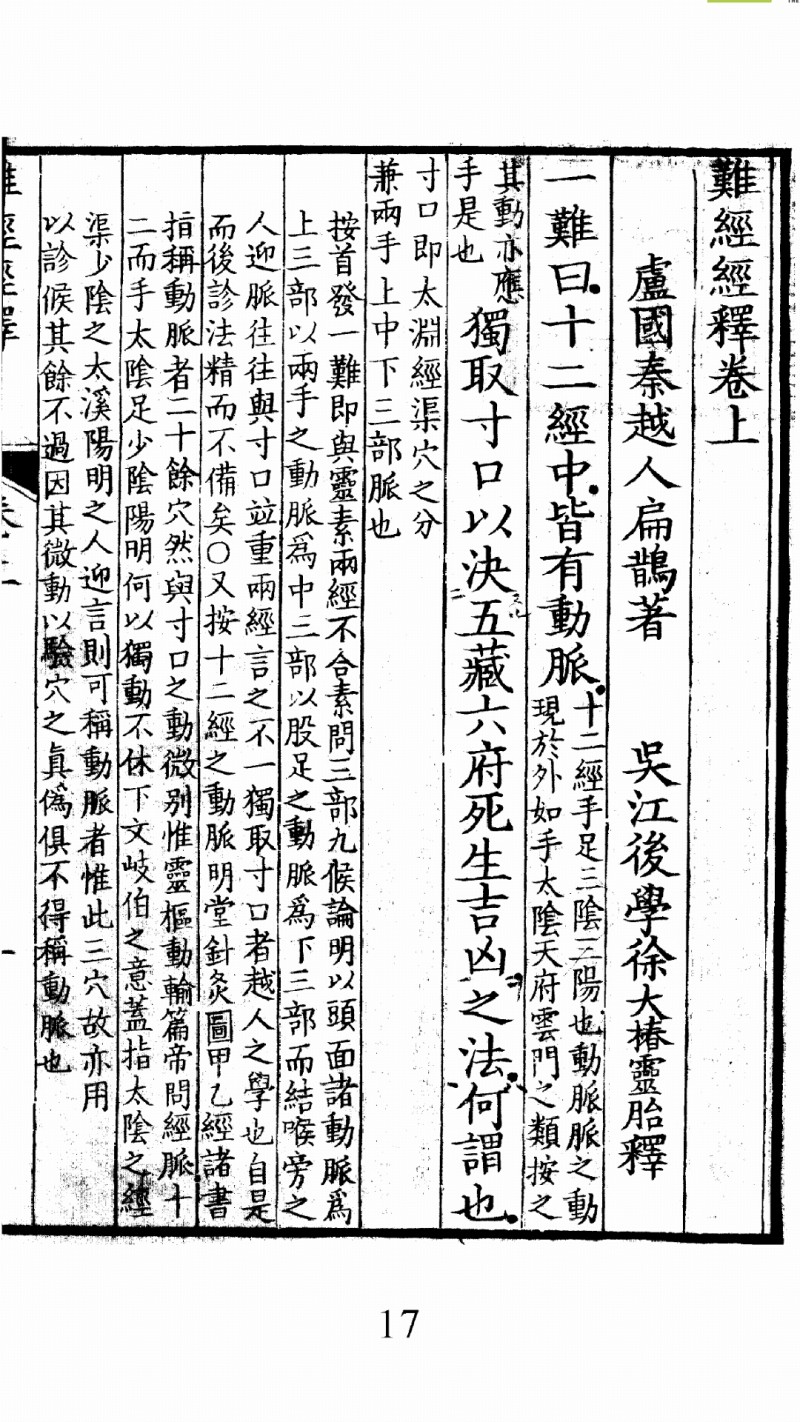 難經經釋卷上
盧國秦越人扁鵲著　吳江後學徐大椿靈胎釋
一難曰十二經中皆有動脈
十二經手足三陰三陽也動脈脈之動
現於外如手太陰天府雲門之類按之
其動亦應
手是也
獨取寸口以決五藏六府死生吉凶之法何謂也
寸口即太淵經渠穴之分
兼兩手上中下三部脈也
按首發一難即與靈素兩經不合素問三部九候論明以頭面諸動脈爲
上三部以兩手之動脈爲中三部以股足之動脈爲下三部而結喉旁之
人迎脈往往與寸口並重兩經言之不一獨取寸口者越人之學也自是
而後診法精而不備矣〇又按十二經之動脈明堂針灸圖甲乙經諸書
指稱動脈者二十餘穴然與寸口之動微別惟靈樞動輸篇帝問經脈十
二而手太陰足少陰陽明何以獨動不休下文岐伯之意蓋指太陰之經
渠少陰之太溪陽明之人迎言則可稱動脈者惟此三穴故亦用
以診候其餘不過因其微動以驗穴之真僞俱不得稱動脈也
難經經釋
17